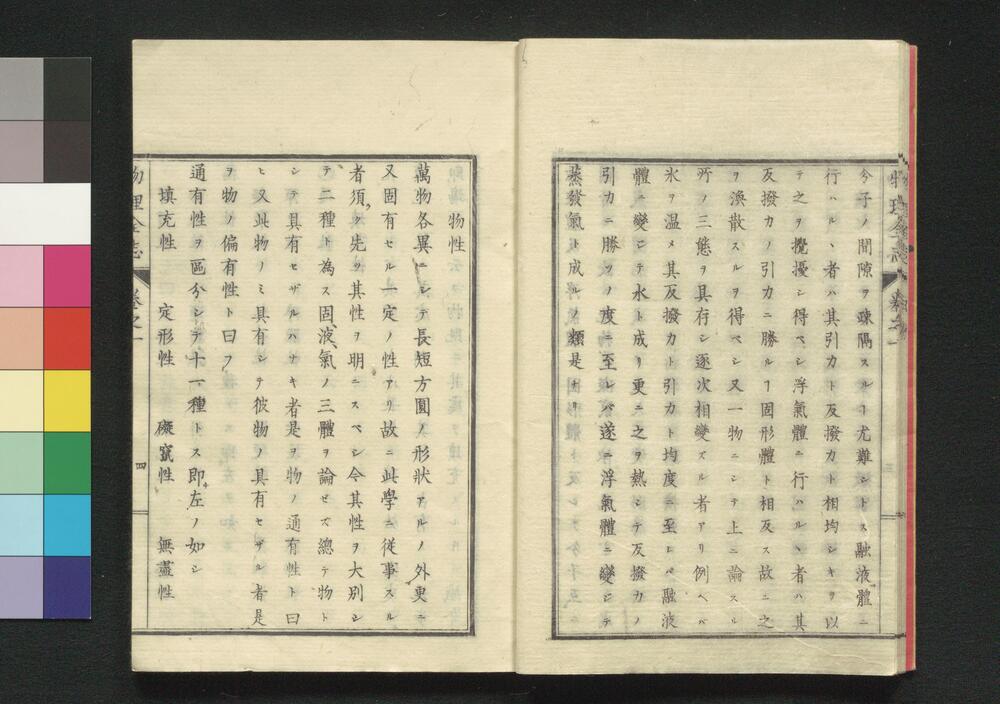 分子ノ間隙ヲ疎隔スルヿ尤難シトス融液體ニ
行ハルヽ者ハ其引力ト反撥力ト相均シキヲ以
テ之ヲ攪擾シ得ベシ浮氣體ニ行ハルヽ者ハ其
反撥力ノ引力ニ勝ルヿ固形體ト相反ス故ニ之
ヲ渙散スルヲ得ベシ又一物ニシテ上ニ論スル
所ノ三態ヲ具存シ逐次相變ズル者アリ例ヘバ
氷ヲ温メ其反撥力ト引力ト均度ニ至レバ融液
體ニ變ジテ水ト成リ更ニ之ヲ熱シテ反撥力ノ
引力ニ勝ツノ度ニ至レバ遂ニ浮氣體ニ變ジテ
蒸發氣ト成ルノ類是ナリ
物理全志 卷之一 三
物性
萬物各異ニシテ長短方圓ノ形狀アルノ外更ニ
又固有セル一定ノ性アリ故ニ此學ニ從事スル
者須ク先ツ其性ヲ明ニスベシ今其性ヲ大別シ
テ二種ト為ス固液氣ノ三體ヲ論セズ總テ物ト
シテ具有セザルハナキ者是ヲ物ノ通有性ト曰
ヒ又此物ノミ具有シテ彼物ノ具有セザル者是
ヲ物ノ偏有性ト曰フ
通有性ヲ區分シテ十一種トス即左ノ如シ
填充性 定形性 礙竄性 無盡性
物理全志 卷之一 四